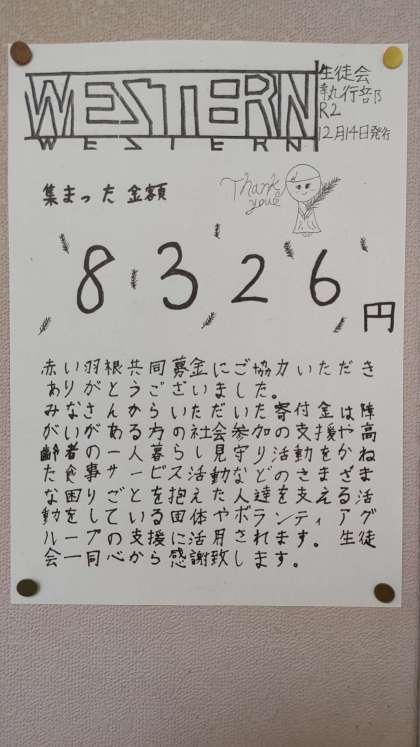 WESTERN
WESTERN
生徒会
執行部
R2
12月14日発行
集まった金額
Thank you
8326円
赤い羽根共同募金にご協力いただき
ありがとうございました。
みなさんからいただいた寄付金は障
がいがある方の社会参加の支援や高
齢者の一人暮らし見守り活動をかね
た食事サービス活動などのさまざま
な困りごとを抱えた人達を支える活
動をしている団体やボランティアグ
ループの支援に活用されます。生徒
会一同心から感謝致します。